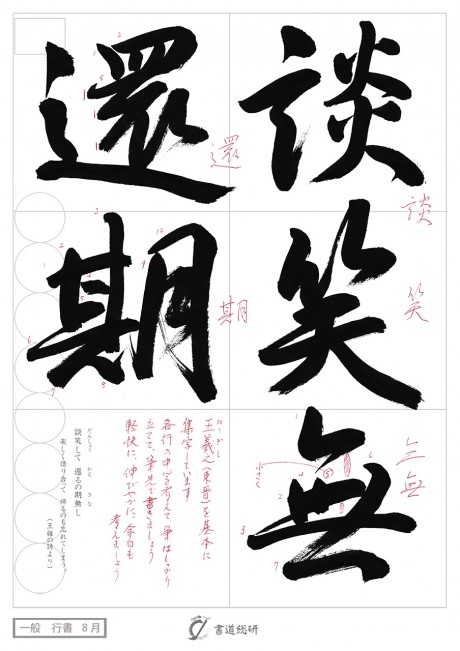 談笑無
還期
談
笑
無
還
期
小さく
王羲之(東晋)を基本に
集字しています
各行の中心を考えて筆はしっかり
立てて筆先で書きましょう
軽快に、伸びやかに、余白も
考えましょう
談笑して 還るの期無し
楽しく語り合って 帰るのも忘れてしまう。
(王維の詩より)
一般 行書 8月
書道総研